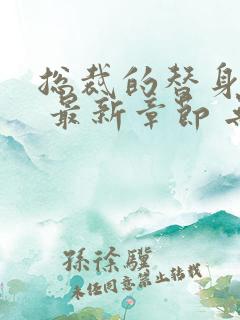 总裁的替身
最新章节
孫徐驥
未经同意禁止转载